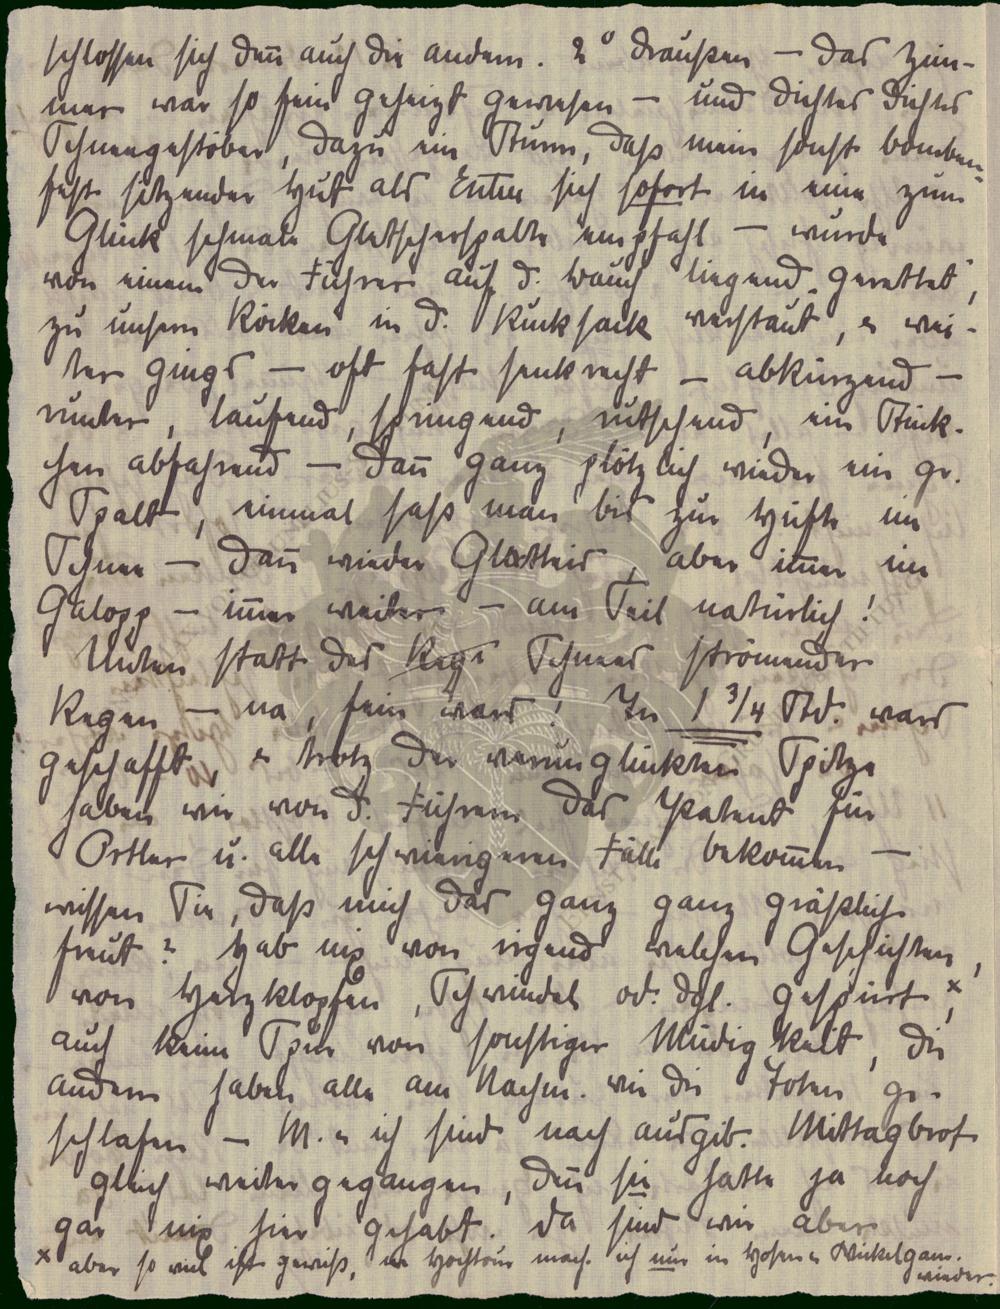 schlossen sich den̄ auch die andern. 2° draußen – das Zim-
mer war so fein geheizt gewesen – und dichtes dichtes
Schneegestöber, dazu ein Sturm, daß mein sonst bomben-
fest sitzender Hut als Erster sich sofort in eine zum
Glück schmale Gletscherspalte empfahl – wurde
von einem der Führer auf d. Bauch liegend gerettet,
zu unsern Röcken in d. Rucksack verstaut, u wei-
ter gings – oft fast senkrecht – abkürzend –
runter, laufend, springend, rutschend, ein Stück-
chen abfahrend – dan̄ ganz plötzlich wieder ein gr.
Spalt, einmal saß man bis zur Hüfte im
Schnee – dan̄ wieder Glatteis, aber im̄er im
Galopp – im̄er weiter – am Seil natürlich!
Unten statt des Regs Schnees strömender
Regen – na, fein wars! In 1 3/4 Std. wars
geschafft, u trotz der verunglückten Spitze
haben wir von d. Führern das Patent für
Ortler u. alle schwierigeren Fälle bekom̄en –
wissen Sie, daß mich das ganz ganz gräßlich
freut? Hab nix von irgend welchen Geschichten,
von Herzklopfen, Schwindel od. dgl. gespürt x,
auch keine Spur von sonstiger Müdigkeit, die
andern haben alle am Nachm. wie die Toten ge-
schlafen – M. u ich sind nach ausgib. Mittagbrot
gleich weiter gegangen, den̄ sie hatte ja noch
gar nix hier gehabt. Da sind wir aber
x aber so viel ist gewiß, ne Hochtour mach ich nur in Hosen u Wickelgam.
wieder.